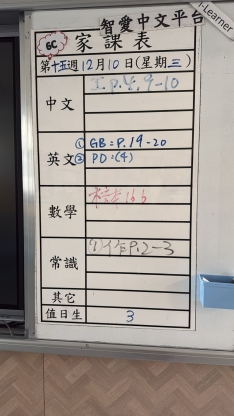 智愛中文平台
i-Learner
6C 家課表
第十五週12月10日(星期三)
中文 工.P.4.9-10
英文 ① GB=P.19-20
② PD:(4)
數學
常識 (1)作P.2-3
其它
值日生 3